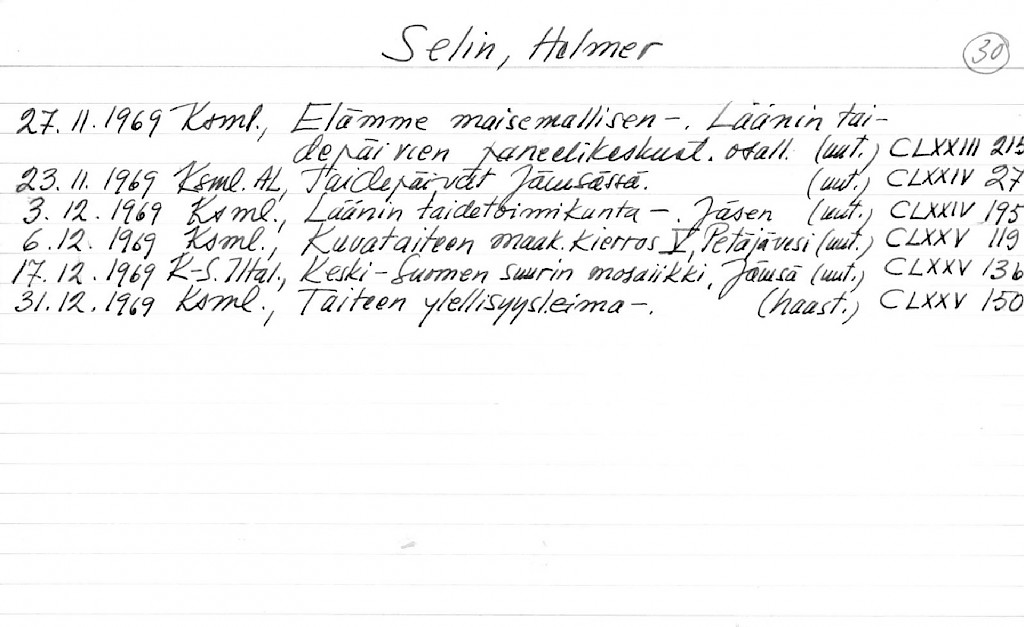 Selin, Holmer
30
27.11.1969 Ksml., Elämme maisemallisen-. Läänin tai-
depäivien paneelikeskust. osall. (uut.) CLXXIII 215
23.11.1969 Ksml. AL, Taidepäivät Jämsässä. (uut.) CLXXIV 27
3.12.1969 Ksml., Läänin taidetoimikunta-. Jäsen (uut.) CLXXIV 195
6.12.1969 Ksml., Kuvataiteen maak. kierros V, Petäjävesi (uut.) CLXXV 119
17.12.1969 K-S. Iltal., Keski-Suomen suurin mosaiikki, Jämsä (uut.) CLXXV 136
31.12.1969 Ksml., Taiteen ylellisyysleima-. (haast.) CLXXV 150